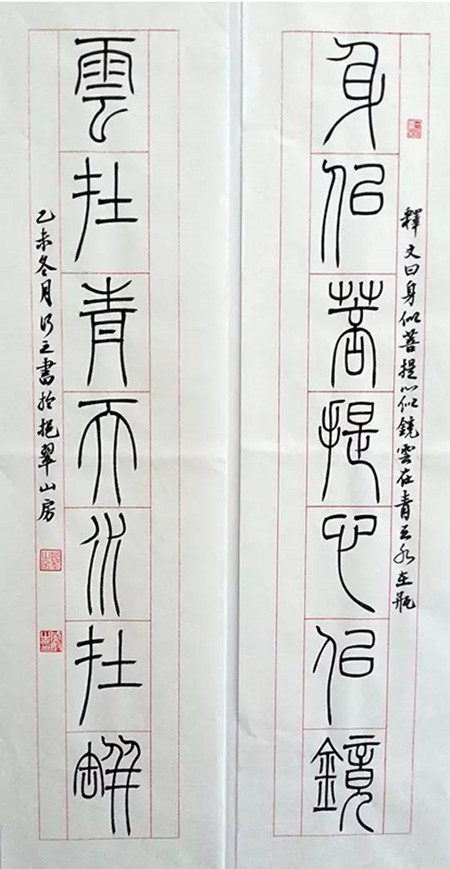 釋文曰身似菩提心似鏡雲在青天水在瓶
身似菩提心似鏡
雲在青天水在缾
乙未冬月行之書於挹翠山房